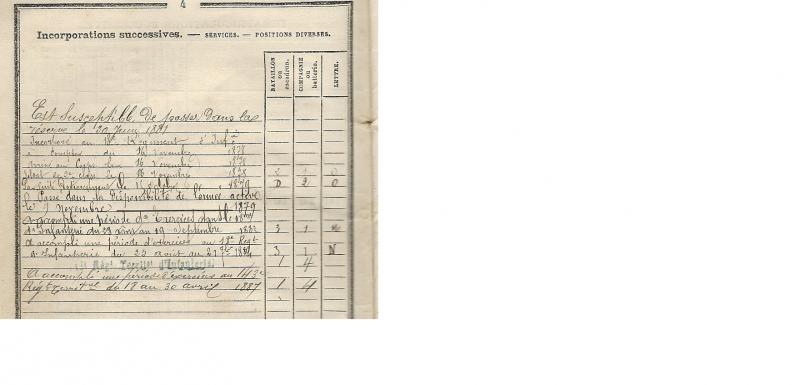 4
Incorporations successives. — SERVICES. — POSITIONS DIVERSES.
BATAILLON ou escadron.
COMPAGNIE ou batterie.
LETTRE.
Est Susceptible De passer Dans la
réserve le 30 Juin 1881
Incorporé au Régiment d'Inf.ie
à compter du 16 Novembre 1878
Arrivé au Corps le 16 Novembre 1878
Soldat de 2e classe le 16 Novembre 1878 2 1 0
le 1879 D 2 0
Passé dans la Disponibilité de l'armée active
le 9 Novembre 1879
A accompli une période d'Exercices dans le
d'Infanterie du 23 août au 19 Septembre 1883 3 1
a accompli une période d'exercices au Régt
d'Infanterie du 25 août au 21 7bre 1884 3 1 N
Régt Territ. d'Infanterie 1 4
A accompli une période d'exercices au 143e
Régt Territ.l du 18 au 30 avril 1887 1 4